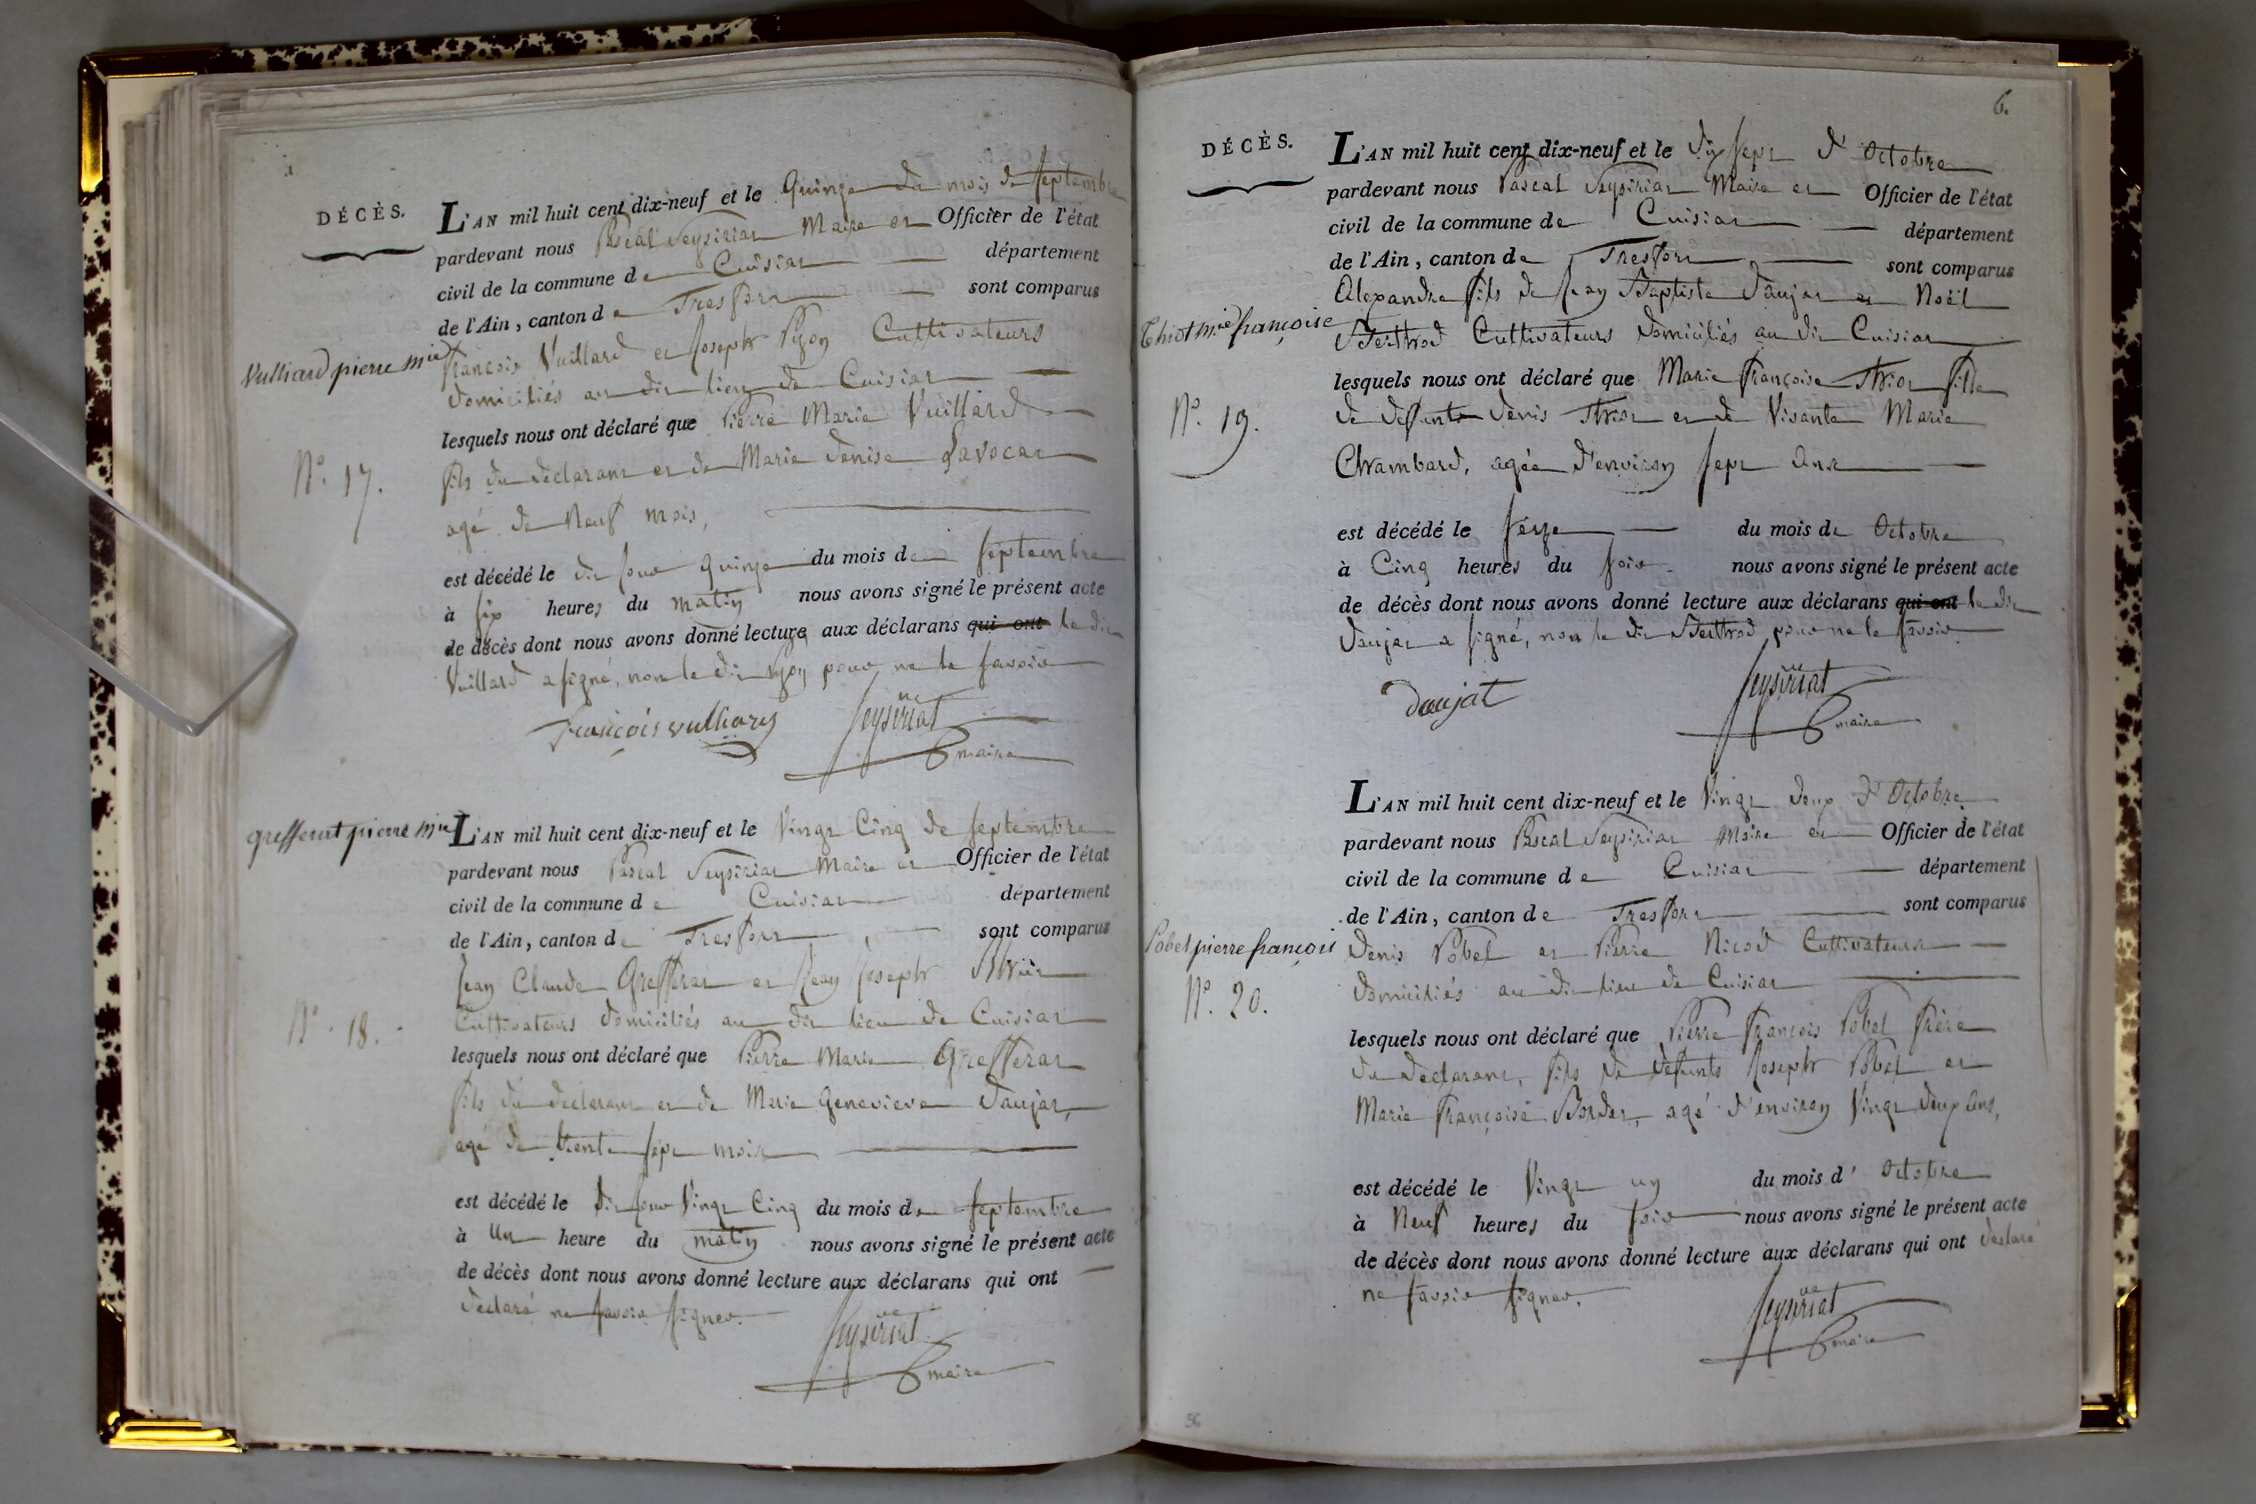 DÉCÈS.
L'AN mil huit cent dix-neuf et le Quinze du mois de Septembre
pardevant nous Pascal Seysiriat Maire et Officier de l'état
civil de la commune de Cuisiat département
de l'Ain, canton de Treffort sont comparus
Vulliard pierre mie
François Vuillard et Joseph Pyon Cultivateurs
domiciliés au dit lieu de Cuisiat
lesquels nous ont déclaré que Pierre Marie Vuillard
Nº. 17.
fils du déclarant et de Marie denise Lavocat
agé de Neuf mois,
est décédé le dit jour quinze du mois de Septembre
à six heures du matin nous avons signé le présent acte
de décès dont nous avons donné lecture aux déclarans qui ont le dit
Vuillard a signé, non le dit Pyon pour ne le savoir
françois vulliard Seysiriat
maire
greffierat pierre mie
L'AN mil huit cent dix-neuf et le Vingt Cinq de Septembre
pardevant nous Pascal Seysiriat Maire et Officier de l'état
civil de la commune de Cuisiat département
de l'Ain, canton de Treffort sont comparus
Jean Claude Grefferat et Jean Joseph
Nº. 18.
Cultivateurs domiciliés au dit lieu de Cuisiat
lesquels nous ont déclaré que Pierre Marie Grefferat
fils du déclarant et de Marie Genevieve Daujat,
agé de trente sept mois
est décédé le dit jour Vingt Cinq du mois de Septembre
à Un heure du matin nous avons signé le présent acte
de décès dont nous avons donné lecture aux déclarans qui ont
déclaré ne savoir signer.
Seysiriat
maire
6.
DÉCÈS.
L'AN mil huit cent dix-neuf et le dix sept d'Octobre
pardevant nous Pascal Seysiriat Maire et Officier de l'état
civil de la commune de Cuisiat département
de l'Ain, canton de Treffort sont comparus
Alexandre fils de Jean Baptiste Daujat et Noël
Thiot mie françoise
Berthod Cultivateurs domiciliés au dit Cuisiat
lesquels nous ont déclaré que Marie françoise Thiot fille
Nº. 19.
de défunts denis Thiot et de Visante Marie
Chambard, agée d'environ sept ans
est décédé le seize du mois de Octobre
à Cinq heures du soir nous avons signé le présent acte
de décès dont nous avons donné lecture aux déclarans qui ont le dit
Daujat a signé, non le dit Berthod pour ne le savoir.
daujat Seysiriat
maire
L'AN mil huit cent dix-neuf et le Vingt deux d'Octobre
pardevant nous Pascal Seysiriat Maire et Officier de l'état
civil de la commune de Cuisiat département
de l'Ain, canton de Treffort sont comparus
Pobel pierre françois
Denis Pobel et Pierre Nicod Cultivateurs
Nº. 20.
domiciliés au dit lieu de Cuisiat
lesquels nous ont déclaré que Pierre François Pobel frère
du déclarant, fils de défunts Joseph Pobel et
Marie Françoise Border, agé d'environ Vingt deux ans,
est décédé le Vingt un du mois d'Octobre
à Neuf heures du soir nous avons signé le présent acte
de décès dont nous avons donné lecture aux déclarans qui ont déclaré
ne savoir signer.
Seysiriat
maire
56